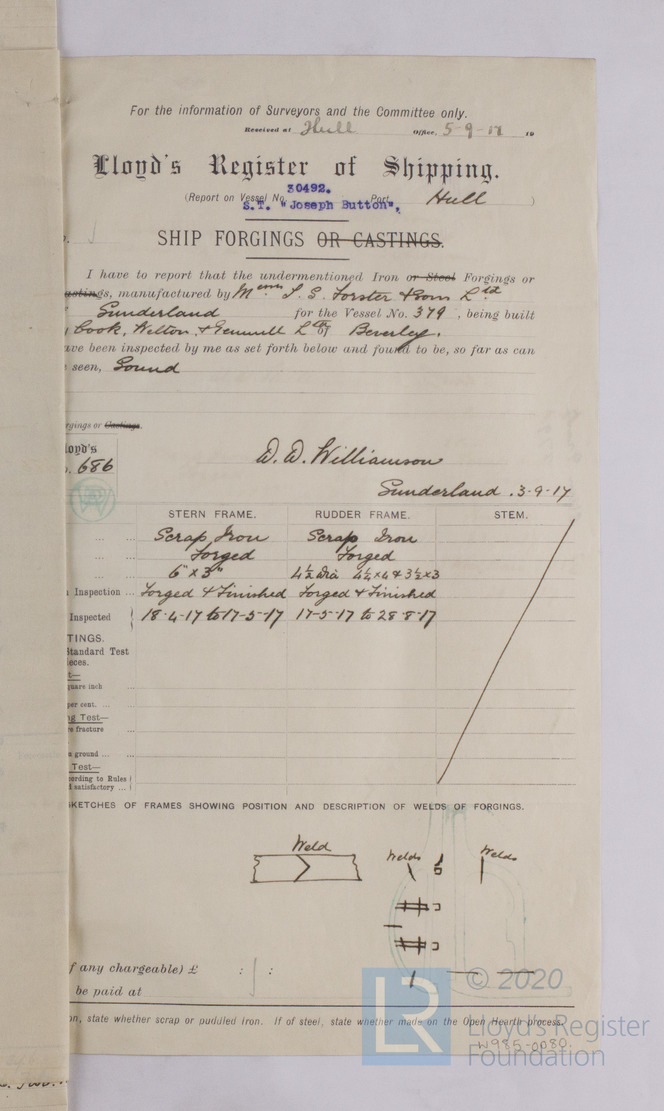 For the information of Surveyors and the Committee only.
Received at Hull Office, 5-9-17 19
Lloyd's Register of Shipping.
30492.
(Report on Vessel No. Port Hull )
S.T. "Joseph Button",
SHIP FORGINGS OR CASTINGS.
I have to report that the undermentioned Iron or Steel Forgings or
astings, manufactured by Messrs T. S. Forster & Sons Ltd
Sunderland for the Vessel No. 379, being built
Cook, Welton & Gemmell Ltd of Beverley.
ave been inspected by me as set forth below and found to be, so far as can
seen, Sound
rgings or Castings.
loyd's
. 686
D. D. Williamson
Sunderland. 3-9-17
STERN FRAME. RUDDER FRAME. STEM.
Scrap Iron Scrap Iron
Forged Forged
6" x 3" 4½ dia 4½ x 4 & 3½ x 3
Inspection ... Forged & Finished Forged & Finished
Inspected 18-4-17 to 17-5-17 17-5-17 to 28-8-17
TINGS.
Standard Test
ieces.
t—
quare inch ...
per cent. ... ...
ng Test—
re fracture ...
n ground ... ...
Test—
cording to Rules
d satisfactory ...
SKETCHES OF FRAMES SHOWING POSITION AND DESCRIPTION OF WELDS OF FORGINGS.
Weld
Welds Welds
f any chargeable) £ : :
be paid at
on, state whether scrap or puddled Iron. If of steel, state whether made on the Open Hearth process.
© 2020
LR
Lloyd's Register
Foundation
W985-0080